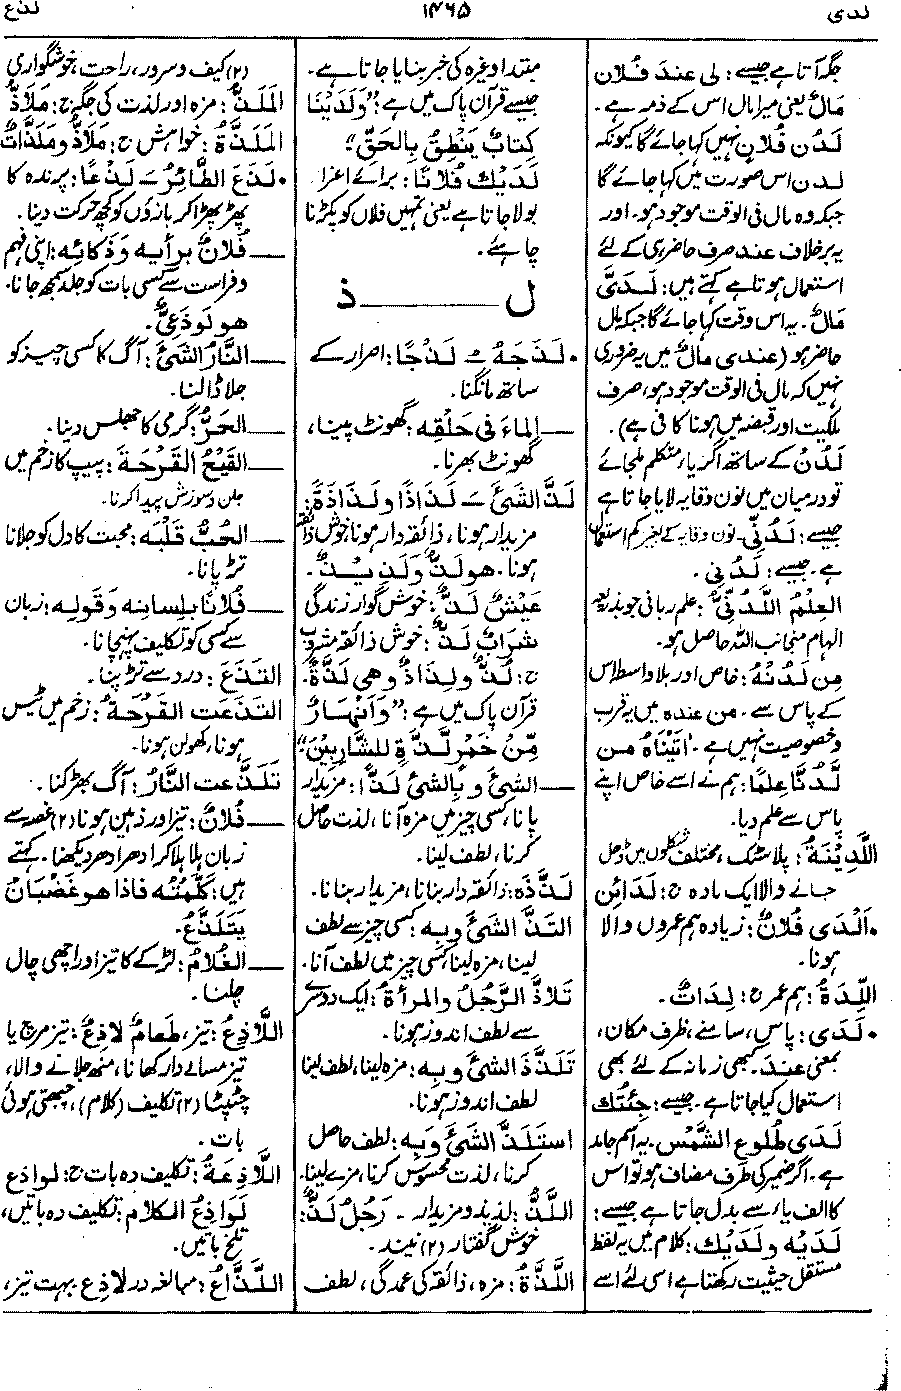 لدی
۱۴۶۵
لذع
جگہ آتا ہے جیسے: لِی عِندَ فُلَان
مَالٌ یعنی میرا مال اس کے ذمہ ہے۔
لَدُن فُلَانٍ نہیں کہا جائے گا کیونکہ
لدن اس صورت میں کہا جائے گا
جبکہ وہ مال فی الوقت موجود ہو۔ اور
یہ برخلاف عند صرف حاضر ہی کے لئے
استعمال ہوتا ہے کہتے ہیں: لَدَیَّ
مَالٌ۔ یہ اس وقت کہا جائے گا جبکہ مال
حاضر ہو (عندی مالٌ میں یہ ضروری
نہیں کہ مال فی الوقت موجود ہو، صرف
ملکیت اور قبضہ میں ہونا کافی ہے)۔
لَدُنْ کے ساتھ اگر یاء متکلم ملجائے
تو درمیان میں نون وقایہ لایا جاتا ہے
جیسے: لَدُنِّی۔ نون وقایہ کے بغیر کم استعمال
ہے۔ جیسے: لَدُنِی۔
العِلْمُ اللَّدُنِیُّ: علم ربانی جو بذریعہ
الہام منجانب اللہ حاصل ہو۔
مِن لَدُنْهُ: خاص اور بلا واسطہ اس
کے پاس سے۔ من عندہ میں یہ قرب
و خصوصیت نہیں ہے۔ اٰتَیْنَاهُ مِن
لَّدُنَّا عِلْمًا: ہم نے اسے خاص اپنے
پاس سے علم دیا۔
اللَّدِیْنَةُ: پلاسٹک، مختلف شکلوں میں ڈھل
جانے والا ایک مادہ ج: لَدَائِن
•اَلْدَی فُلَانٌ: زیادہ ہم عمروں والا
ہونا۔
اللِّدَةُ: ہم عمر ج: لِدَاتٌ۔
• لَدَی: پاس، سامنے، ظرف مکان،
بمعنی عند۔ کبھی زمانہ کے لئے بھی
استعمال کیا جاتا ہے۔ جیسے: جِئْتُكَ
لَدَی طُلُوعِ الشَّمْسِ۔ یہ اسم جامد
ہے۔ اگر ضمیر کی طرف مضاف ہو تو اس
کا الف یاء سے بدل جاتا ہے جیسے:
لَدَیْهِ ولَدَیْكَ: کلام میں یہ لفظ
مستقل حیثیت رکھتا ہے اسی لئے اسے
مبتدا وغیرہ کی خبر بنایا جاتا ہے۔
جیسے قرآن پاک میں ہے: "وَلَدَیْنَا
کِتَابٌ یَنْطِقُ بِالحَقِّ"
لَدَیْكَ فُلَانًا: برائے اغرا
بولا جاتا ہے یعنی تمہیں فلاں کو پکڑنا
چاہئے۔
ل ــــــ ذ
• لَذَجَهُ ـُ لَذْجًا: اصرار کے
ساتھ مانگنا۔
ــــ الماءَ فی حَلْقِه: گھونٹ پینا،
گھونٹ بھرنا۔
لَذَّ الشَّیْءُ ـَ لَذَاذًا ولَذَاذَةً:
مزیدار ہونا، ذائقہ دار ہونا، خوش ذائقہ
ہونا۔ هو لَذٌّ وَلَذِیْذٌ۔
عَیْشٌ لَذٌّ: خوش گوار زندگی
شَرَابٌ لَذٌّ: خوش ذائقہ مشروب
ج: لُذٌّ ولِذَاذٌ وهی لَذَّةٌ۔
قرآن پاک میں ہے: "وَاَنْهَارٌ
مِّنْ خَمْرٍ لَّذَّةٍ لِلشَّارِبِیْنَ"
ــــ الشَّیْءَ وبِالشَّیْءِ لَذًّا: مزیدار
پانا، کسی چیز میں مزہ آنا، لذت حاصل
کرنا، لطف لینا۔
لَذَّذَهُ: ذائقہ دار بنانا، مزیدار بنانا۔
التَذَّ الشَّیْءَ وبِه: کسی چیز سے لطف
لینا، مزہ لینا، کسی چیز میں لطف آنا۔
تَلَاذَّ الرَّجُلُ والمرأةُ: ایک دوسرے
سے لطف اندوز ہونا۔
تَلَذَّذَ الشَّیْءَ وبِه: مزہ لینا، لطف لینا
لطف اندوز ہونا۔
استَلَذَّ الشَّیْءَ وَبِه: لطف حاصل
کرنا، لذت محسوس کرنا، مزے لینا۔
اللَّذُّ: لذیذ و مزیدار۔ رَجُلٌ لَذٌّ:
خوش گفتار (۲) نیند۔
اللَّذَّةُ: مزہ، ذائقہ کی عمدگی، لطف
(۲) کیف و سرور، راحت، خوشگواری
المَلَذُّ: مزہ اور لذت کی جگہ ج: مَلَاذُّ
المَلَذَّةُ: خواہش ج: مَلَاذُّ ومَلَذَّاتٌ
•لَذَعَ الطَّائِرُ ـَ لَذْعًا: پرندہ کا
پھڑپھڑا کر بازوں کو کچھ حرکت دینا۔
ــــ فُلَانٌ برأیِه وَذَکائِه: اپنی فہم
و فراست سے کسی بات کو جلد سمجھ جانا۔
هو لَوذَعِیٌّ۔
ــــ النَّارُ الشَّیْءَ: آگ کا کسی چیز کو
جلا ڈالنا۔
ــــ الحَرُّ: گرمی کا جھلس دینا۔
ــــ القَیْحُ القَرْحَةَ: پیپ کا زخم میں
جلن و سوزش پیدا کرنا۔
ــــ الحُبُّ قَلْبَه: محبت کا دل کو جلانا
تڑپانا۔
ــــ فُلَانًا بِلِسانِه وَقَولِه: زبان
سے کسی کو تکلیف پہنچانا۔
التَذَعَ: درد سے تڑپنا۔
التَذَعَت القَرْحَةُ: زخم میں ٹیس
ہونا، کھولن ہونا۔
تَلَذَّعَت النَّارُ: آگ بھڑکنا۔
ــــ فُلَانٌ: تیز اور ذہین ہونا (۲) غصہ سے
زبان ہلا ہلا کر ادھر ادھر دیکھنا۔ کہتے
ہیں: کَلَّمْتُه فَاذا هو غَضْبَانُ
یَتَلَذَّعُ۔
ــــ الغُلَامُ: لڑکے کا تیز اور اچھی چال
چلنا۔
اللَّاذِعُ: تیز، طَعامٌ لاذِعٌ: تیز مرچ یا
تیز مسالے دار کھانا، منھ جلانے والا،
چٹپٹا (۲) تکلیف (کلام)، چبھتی ہوئی
بات۔
اللَّاذِعَةُ: تکلیف دہ بات ج: لواذع
لَوَاذِعُ الکَلَام: تکلیف دہ باتیں،
تلخ باتیں۔
اللَّذَّاعُ: مبالغہ در لاذِع بہت تیز،